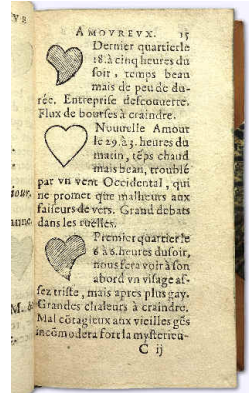 AMOVREVX. 15
Dernier quartier le
18. à cinq heures du
soir, temps beau
mais de peu de du-
rée. Entreprise descouuerte.
Flux de bourses à craindre.
Nouuelle Amour
le 29. à 3. heures du
matin, tẽps chaud
mais beau, troublé
par vn vent Occidental, qui
ne promet que malheurs aux
faiseurs de vers. Grand debats
dans les ruelles.
Premier quartier le
6 à 6. heures du soir,
nous fera voir à son
abord vn visage as-
sez triste, mais apres plus gay.
Grandes chaleurs à craindre.
Mal cõtagieux aux vieilles gẽs
incõmodera fort la mysterieu-
C ij